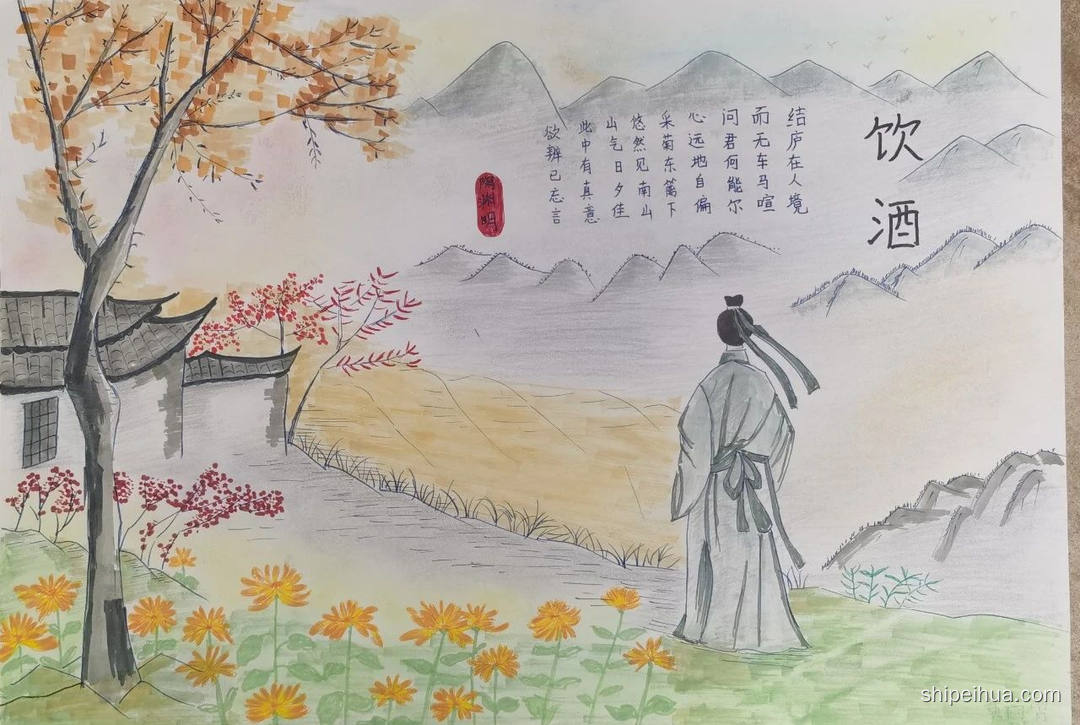 饮酒
结庐在人境
而无车马喧
问君何能尔
心远地自偏
采菊东篱下
悠然见南山
山气日夕佳
此中有真意
欲辨已忘言
陶渊明
shipeihua.com